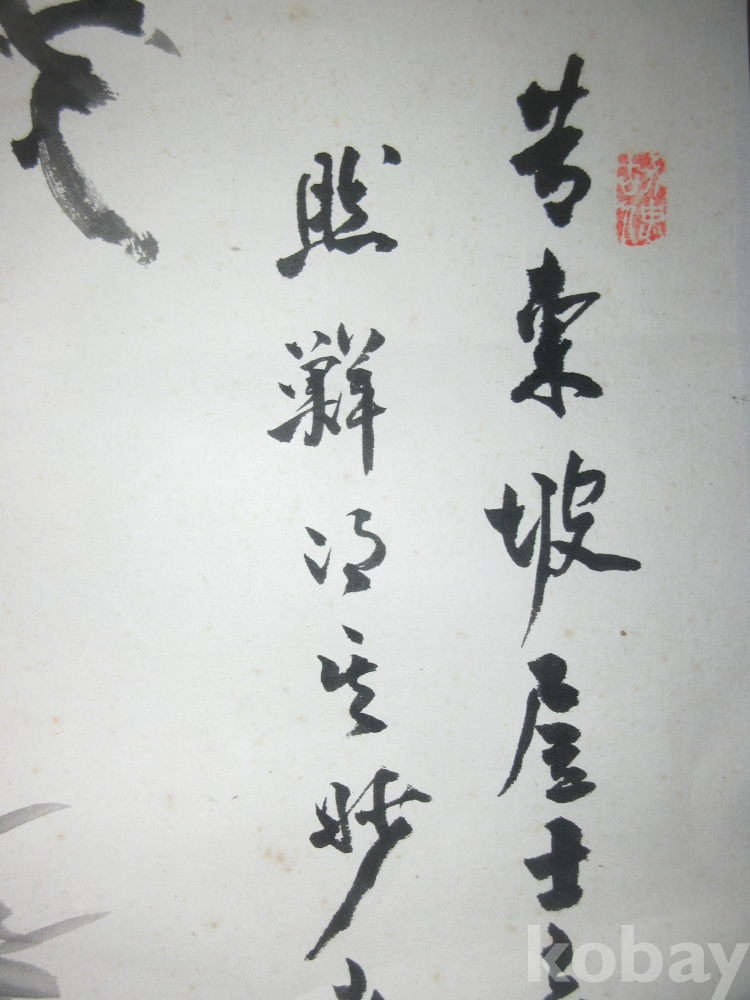 昔東坡居士
然鮮得其妙
kobay